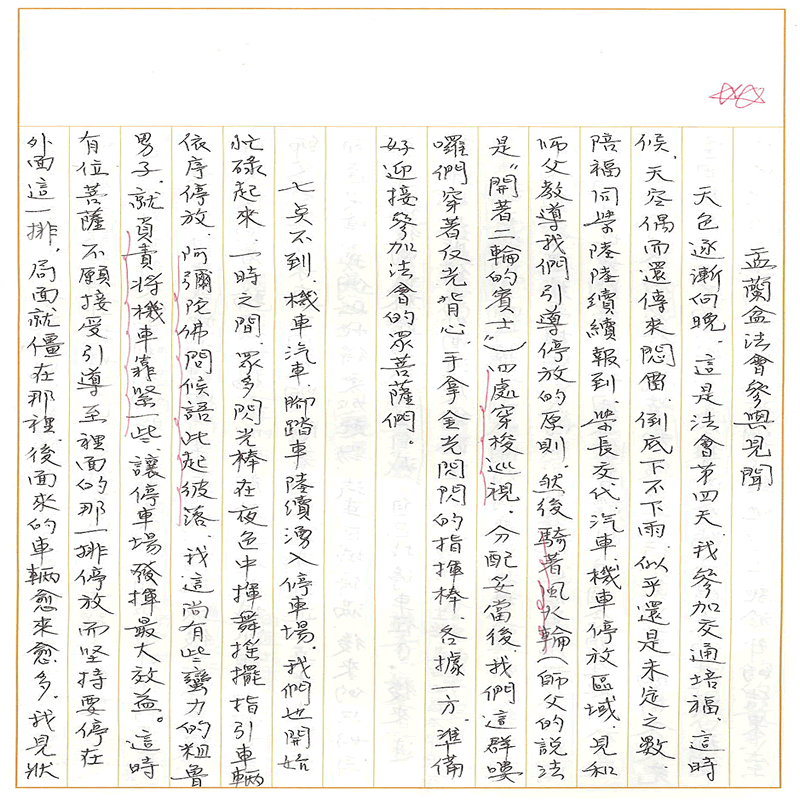 盂蘭盆法會參與見聞
天色逐漸向晚，這是法會第四天，我參加交通培福，這時
候，天空偶而還傳來悶雷，到底下不下雨，似乎還是未定之數，
陪福同學陸陸續續報到，學長交代，汽車、機車停放區域，見和
師父教導我們引導停放的原則，然後騎著風火輪（師父的說法
是“開著二輪的賓士”）四處穿梭巡視。分配妥當後，我們這群嘍
囉們穿著反光背心，手拿金光閃閃的指揮棒，各據一方，準備
好迎接參加法會的眾菩薩們。
七點不到，機車、汽車、腳踏車陸續湧入停車場。我們也開始
忙碌起來，一時之間，眾多閃光棒在夜色中揮舞搖擺，指引車輛
依序停放，阿彌陀佛問候語此起彼落，我這尚有些蠻力的粗魯
男子，就負責將機車靠緊一些，讓停車場發揮最大效益。這時
有位菩薩不願接受引導至裡面的那一排停放，而堅持要停在
外面這一排，局面就僵在那裡，後面來的車輛愈來愈多，我見狀